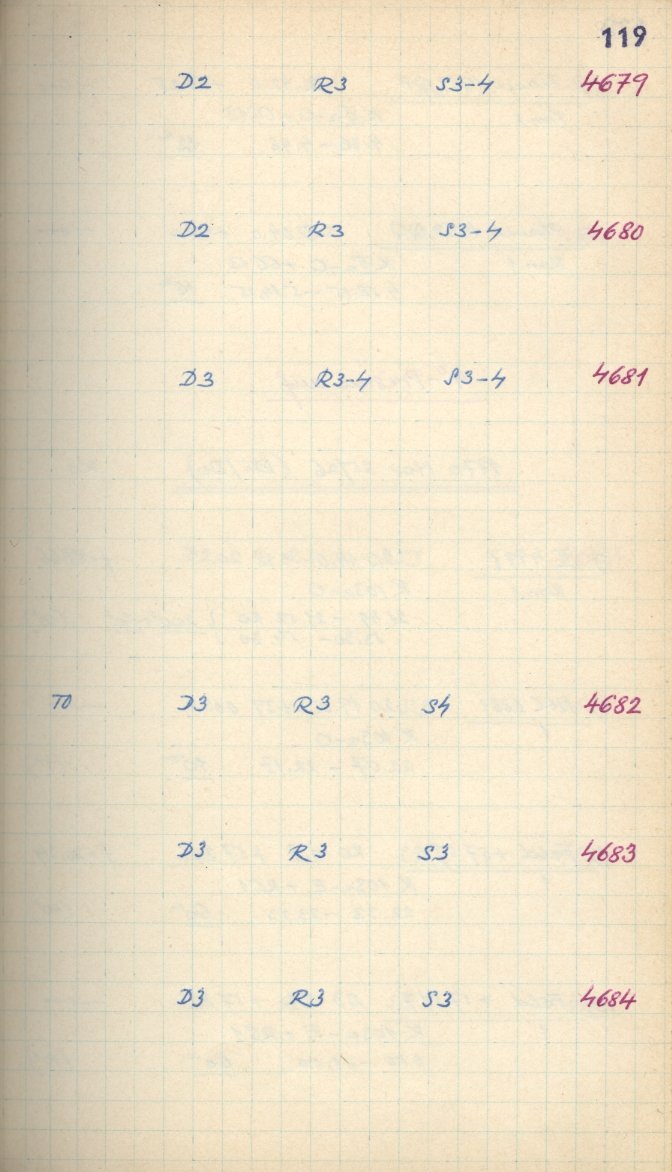 119
D2 R3 S3-4 4679
D2 R3 S3-4 4680
D3 R3-4 S3-4 4681
TO D3 R3 S4 4682
D3 R3 S3 4683
D3 R3 S3 4684